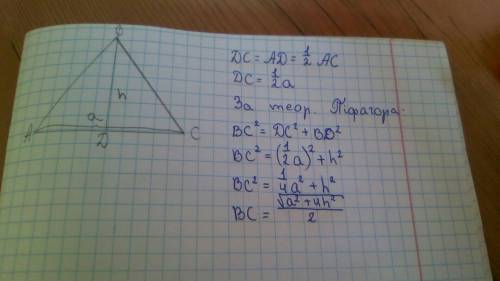 B
h
a
A
D
C
DC = AD = 1/2 AC
DC = 1/2 a
За теор. Піфагора:
BC² = DC² + BD²
BC² = (1/2 a)² + h²
BC² = 1/4 a² + h²
BC = √(a² + 4h²)/2